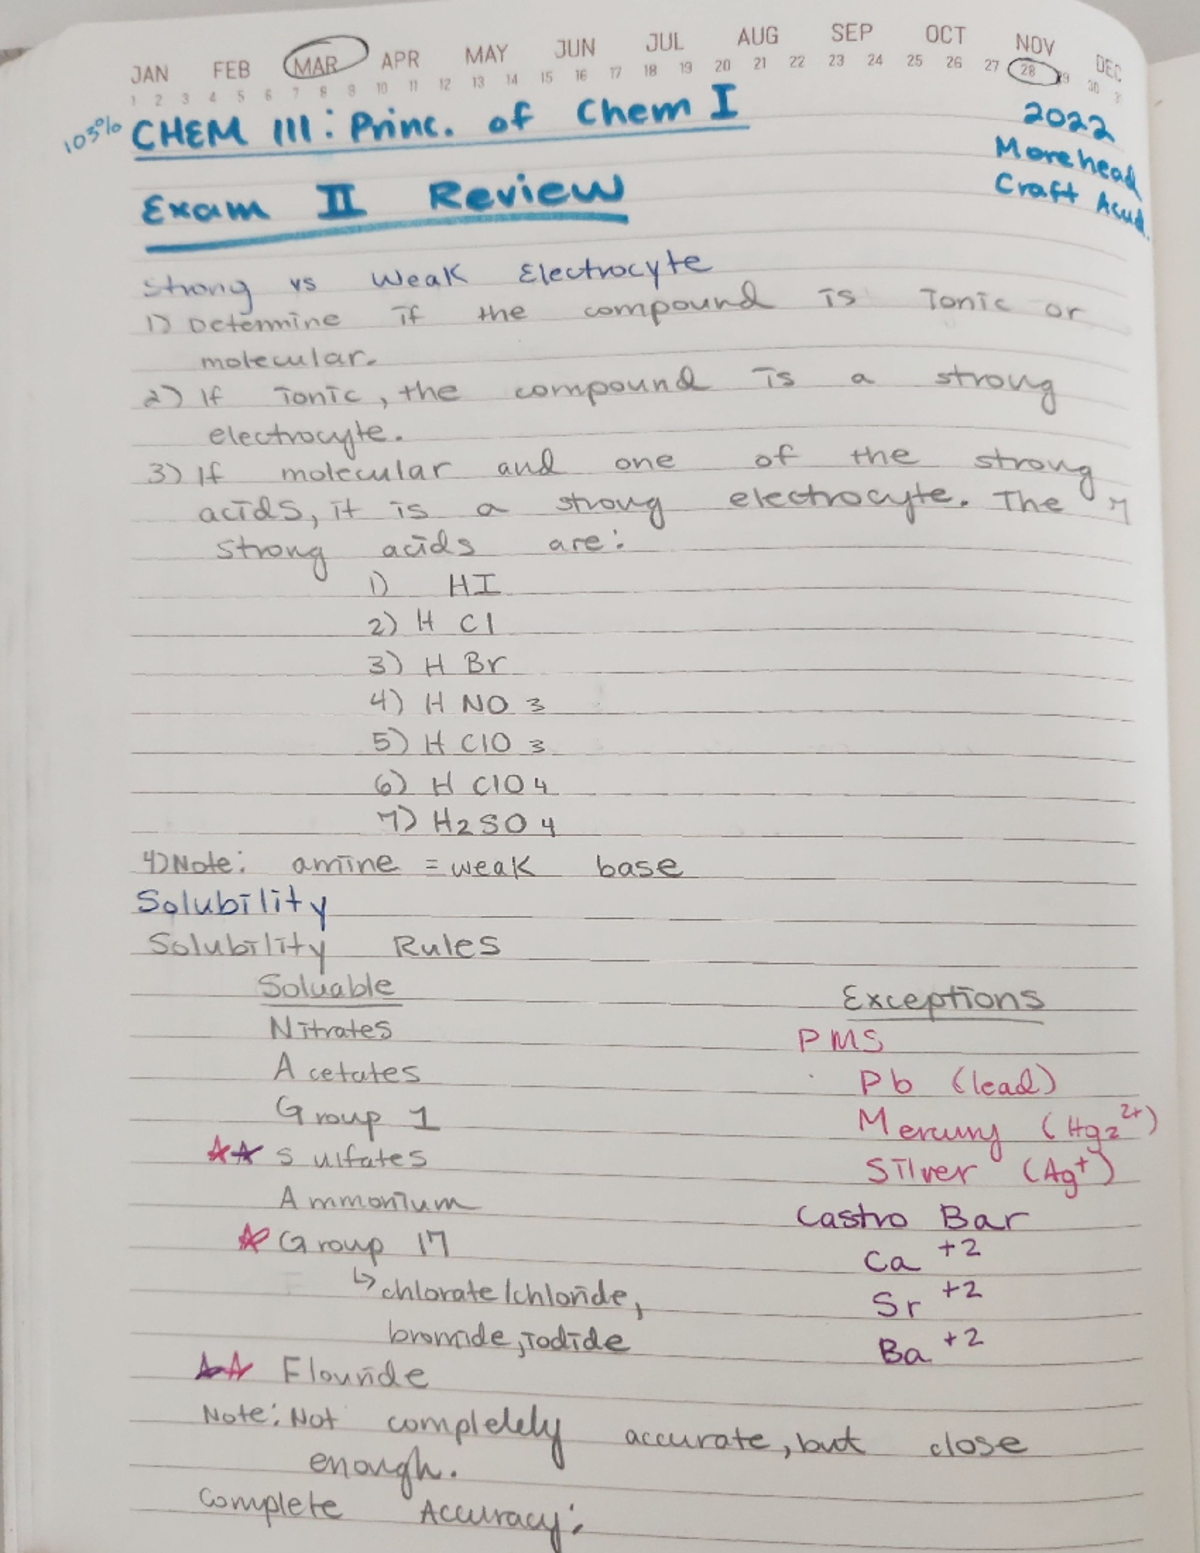 JAN FEB MAR APR MAY JUN JUL AUG SEP OCT NOV DEC
1 2 3 4 5 6 7 8 9 10 11 12 13 14 15 16 17 18 19 20 21 22 23 24 25 26 27 28 29 30 31
103% CHEM 111: Princ. of Chem I
2022
Morehead
Craft Acad.
Exam II Review
Strong vs Weak Electrocyte
1) Determine if the compound is Ionic or
molecular.
2) If ionic, the compound is a strong
electrocyte.
3) If molecular and one of the strong
acids, it is a strong electrocyte. The 7
strong acids are:
1) HI
2) H Cl
3) H Br
4) H NO 3
5) H ClO 3
6) H ClO4
7) H2SO4
4) Note: amine = weak base
Solubility
Solubility Rules
Soluable
Nitrates
Acetates
Group 1
☆☆ Sulfates
Ammonium
☆ Group 17
↳ chlorate/chloride,
bromide, iodide
☆☆ Flouride
Exceptions
PMS
Pb (lead)
Mercury (Hg2 2+)
Silver (Ag+)
Castro Bar
Ca +2
Sr +2
Ba +2
Note: Not completely accurate, but close
enough.
Complete Accuracy: